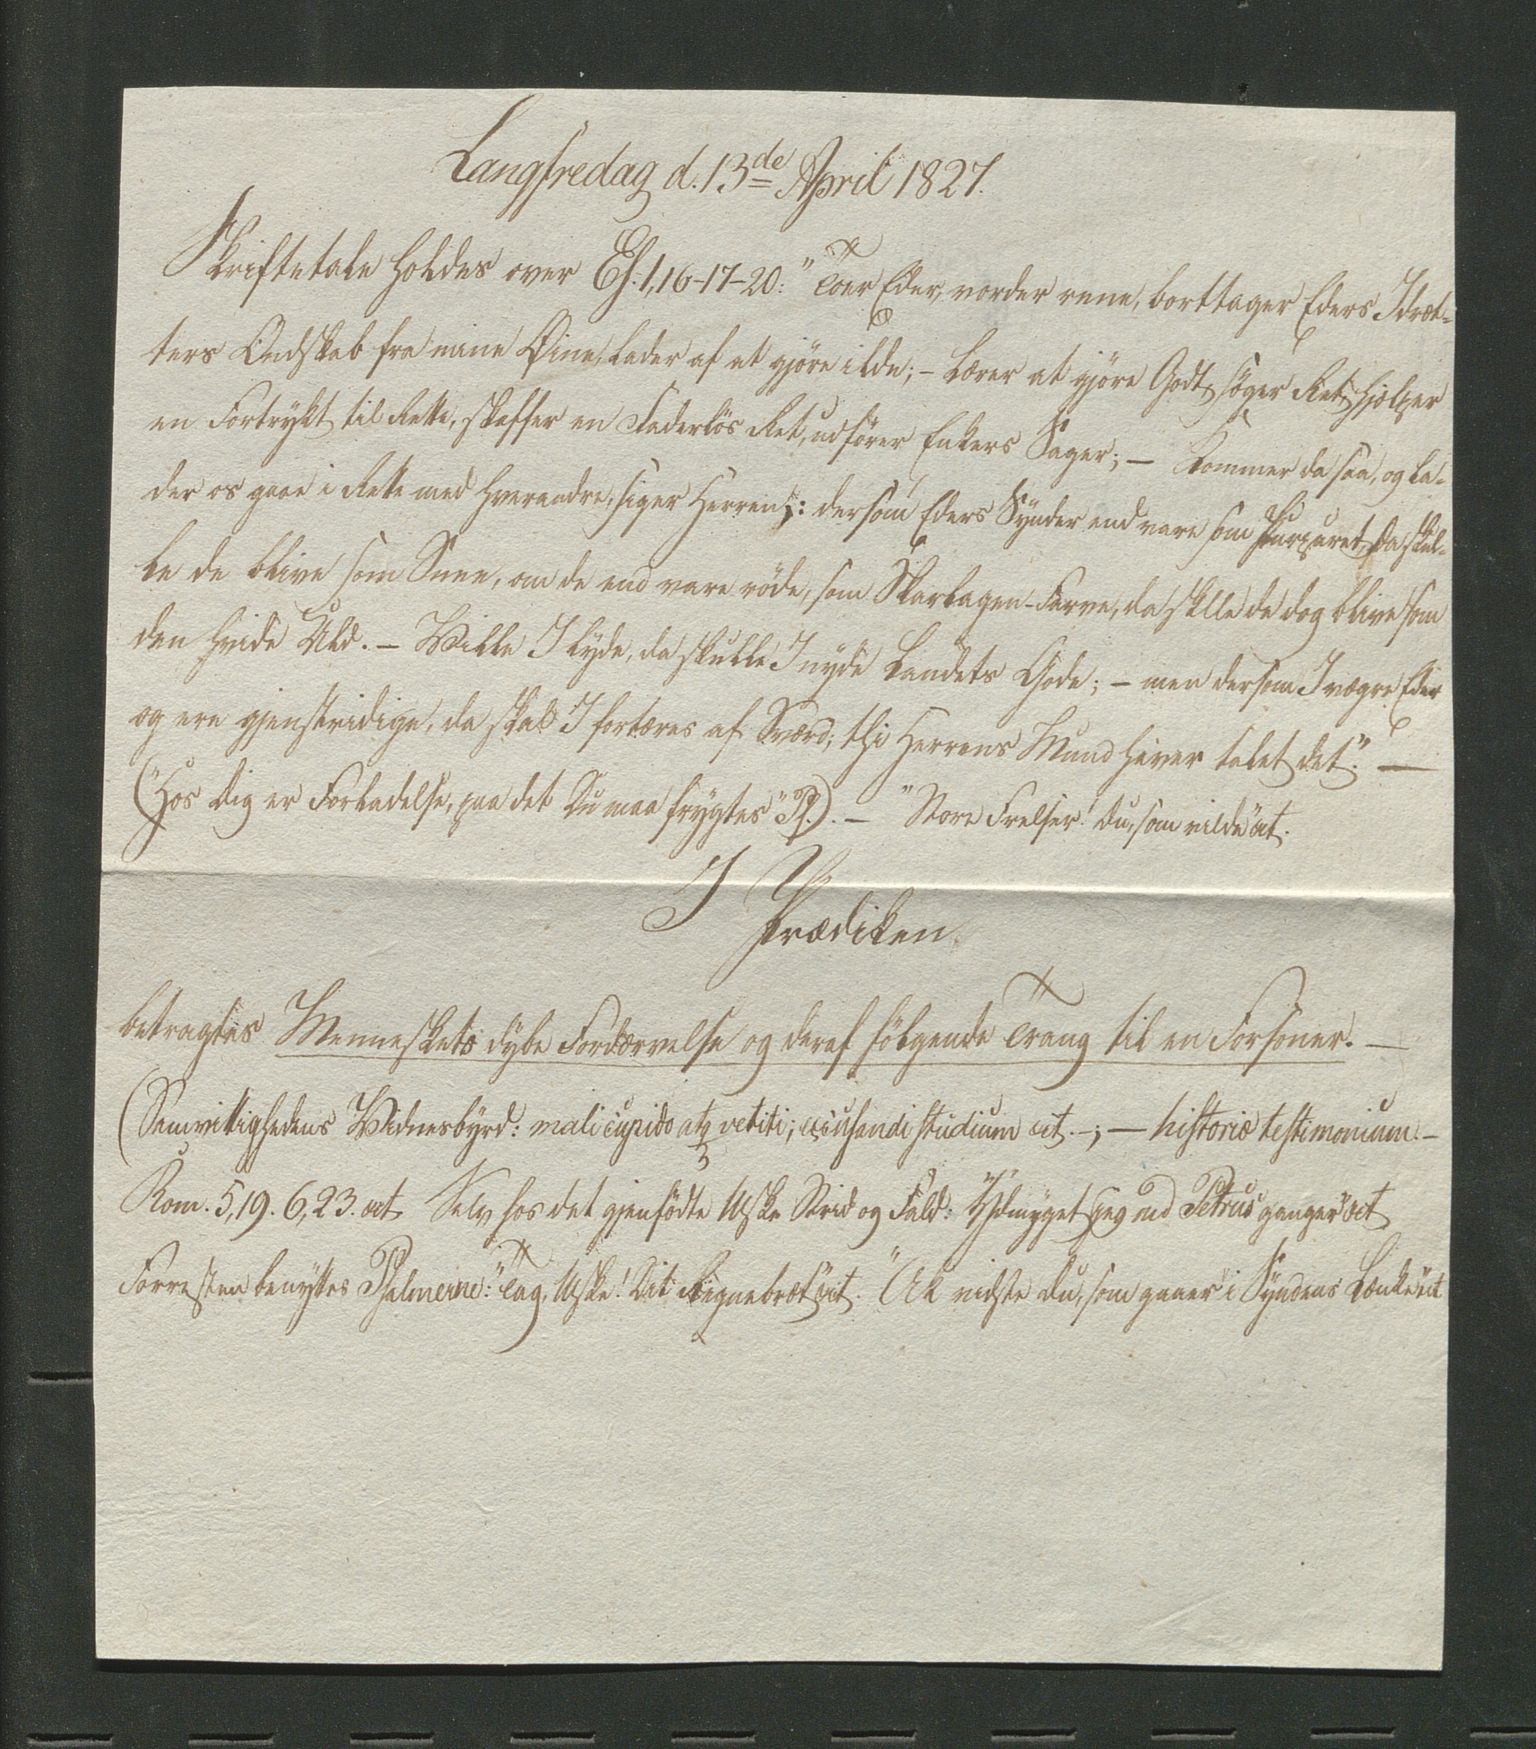 Langfredag d. 13de April 1827.
Skriftetale holdes over Es. 1, 16-17-20: "Toer Eder, vorder rene, borttager Eders Idræt-
ters Ondskab fra mine Øine, lader af at gjöre ilde; – Lærer at gjöre Godt, söger Ret, hjelper
en Fortrykt til Rette, skaffer en Faderlös Ret, udförer Enkers Sager; – Kommer da saa, og la-
der os gaae i Rette med hverandre, siger Herren: dersom Eders Synder end vare som Purpuret, da skul-
le de blive som Snee, om de end vare röde, som Skarlagen-Farve, da sklle de dog blive som
den hvide Uld. – Ville I lyde, da skulle I nyde Landets Gode; – men dersom I vægre Eder
og ere gjenstridige, da skal I fortæres af Sværd; thi Herrens Mund haver talet det." —
("Hos Dig er Forladelse, paa det Du maa frygtes" Ps.). – "Store Frelser! Du, som vilde" æt.
I Prædiken
betragtes Menneskets dybe Fordærvelse og deraf fölgende Trang til en Forsoner. —
(Samvittighedens Vidnesbyrd: mali cupido atq vetiti; excusandi studium æt. –; — historiæ testimonium. –
Rom. 5, 19. 6, 23. æt. Selv hos det gjenfödte Mske Strid og Fald: "Ydmyget jeg md Petrus ganger" æt
Forresten benyttes Psalmerne: "Tag, Mske! Dit Regnebræt" æt. "Ak vidste Du, som gaaer i Syndens Lænke" æt